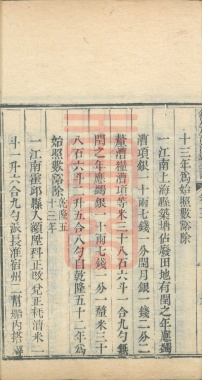 十三年爲始照數豁除
一江南上海縣築塘佔廢田地有閏之年應蠲
漕項銀一十兩七錢一分閏月銀一錢二分二
釐漕糧漕項等米三十八石六斗一合九勺無
閏之年應蠲銀一十兩七錢一分一釐米三十
八石六斗一升五合八勺自乾隆五十二年爲
始照數豁除乾隆五十三年
一江南靈邱縣人額陞科正改兌正耗漕米一
斗一升六合九勺派長淮宿州二幫墩內搭運